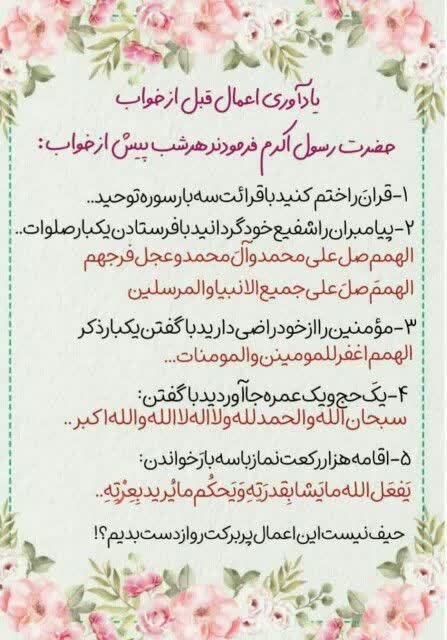 یادآوری اعمال قبل از خواب
حضرت رسول اکرم فرمودند هر شب پیش از خواب :
۱-قران را ختم کنید با قرائت سه بار سوره توحید..
۲-پیامبران را شفیع خود گردانید با فرستادن یکبار صلوات..
الهمم صل علی محمد و آل محمد و عجل فرجهم
الهمَ صلَ علی جمیع الانبیا والمرسلین
۳-مؤمنین را از خود راضی دارید با گفتن یکبار ذکر
الهمم اغفر للمومینن والمومنات...
۴-یکَ حج و یک عمره جا آوردید با گفتن:
سبحان الله والحمدلله ولا اله لا الله والله اکبر ..
۵-اقامه هزار رکعت نماز با سه بارَ خواندن:
یَفعَل الله ما یَشا بِقدرَتِهِ وَیَحکُم ما یُرید بِعِزَتِهِ..
حیف نیست این اعمال پر برکت رو از دست بدیم؟!